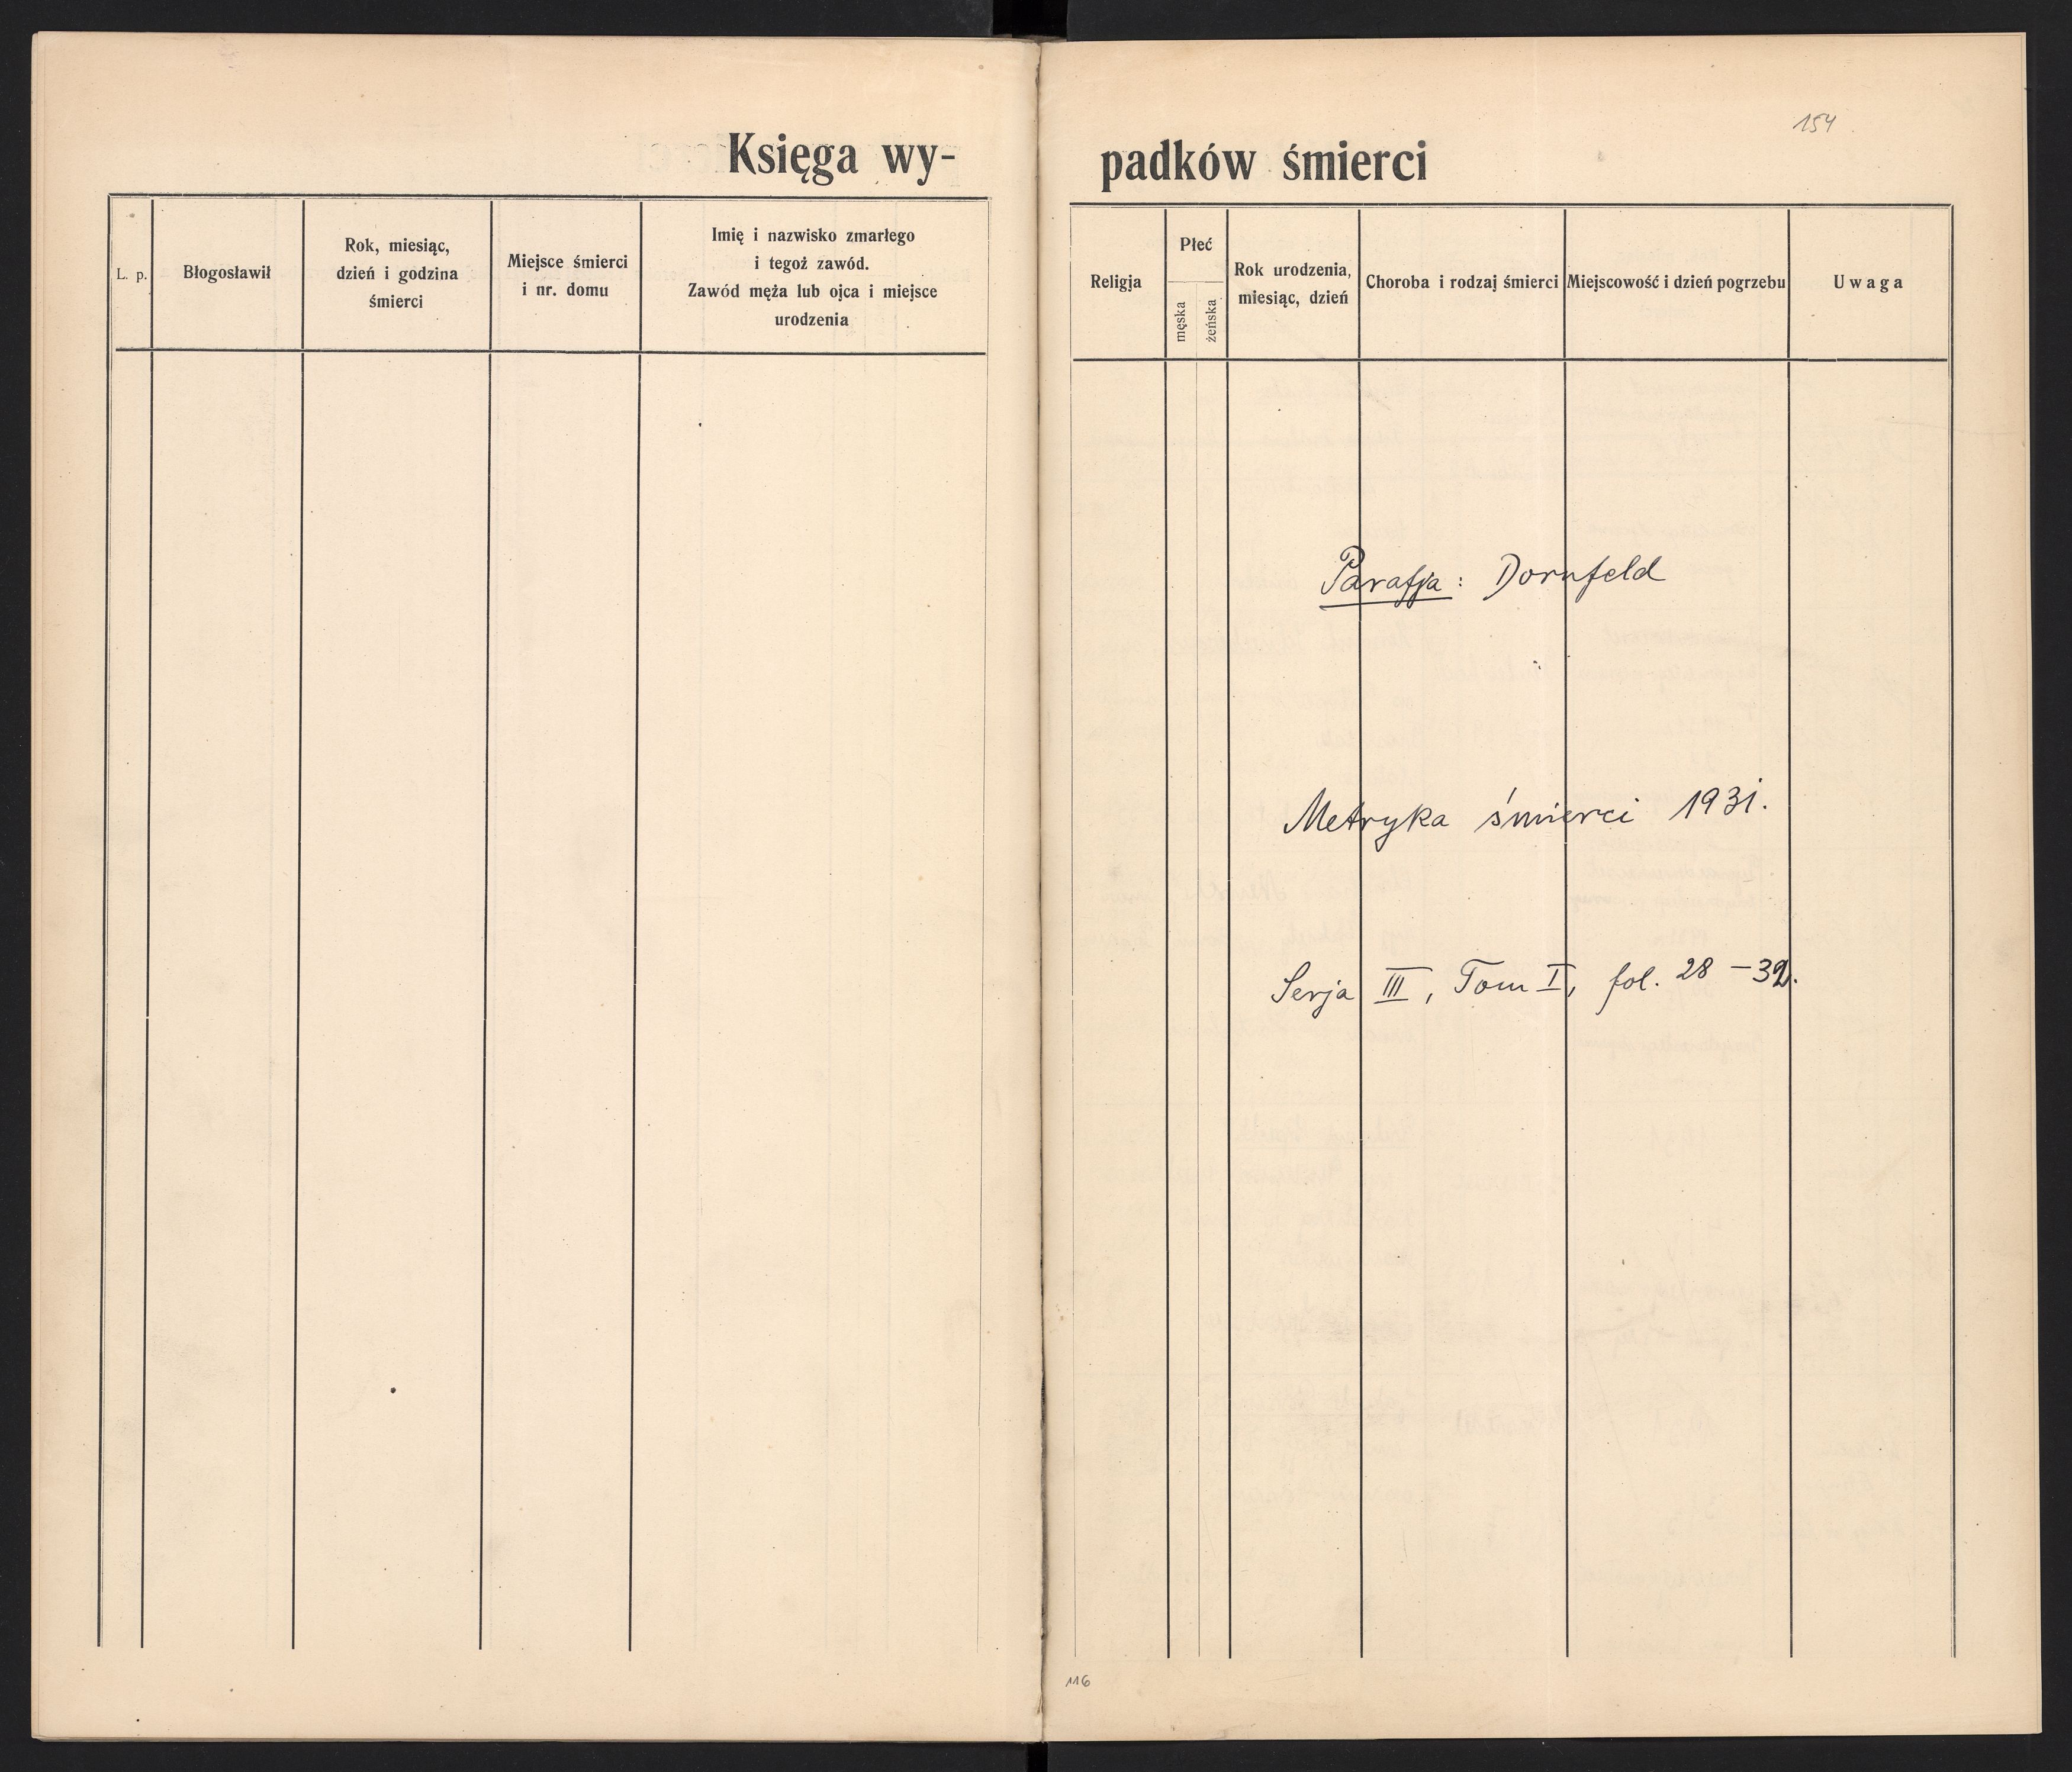 154
Księga wy-
padków śmierci
L. p.
Błogosławił
Rok, miesiąc,
dzień i godzina
śmierci
Miejsce śmierci
i nr. domu
Imię i nazwisko zmarłego
i tegoż zawód.
Zawód męża lub ojca i miejsce
urodzenia
Religja
Płeć
męska
żeńska
Rok urodzenia,
miesiąc, dzień
Choroba i rodzaj śmierci
Miejscowość i dzień pogrzebu
Uwaga
Parafja: Dornfeld
Metryka śmierci 1931.
Serja III, Tom I, fol. 28 – 32.
116